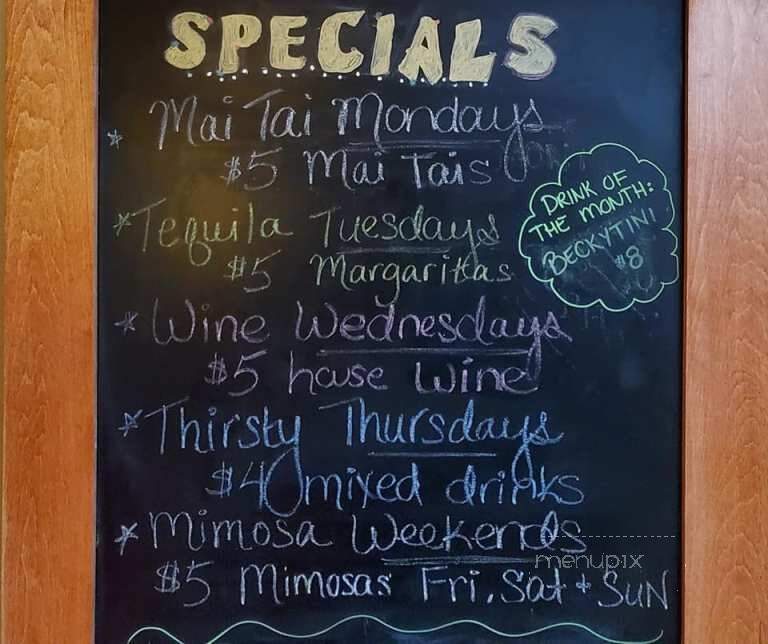 SPECIALS
* Mai Tai Mondays
$5 Mai Tais
* Tequila Tuesdays
$5 Margaritas
DRINK OF
THE MONTH:
BECKYTINI
$8
* Wine Wednesdays
$5 house wine
* Thirsty Thursdays
$4 mixed drinks
* Mimosa Weekends
menupix
$5 Mimosas Fri, Sat + SUN